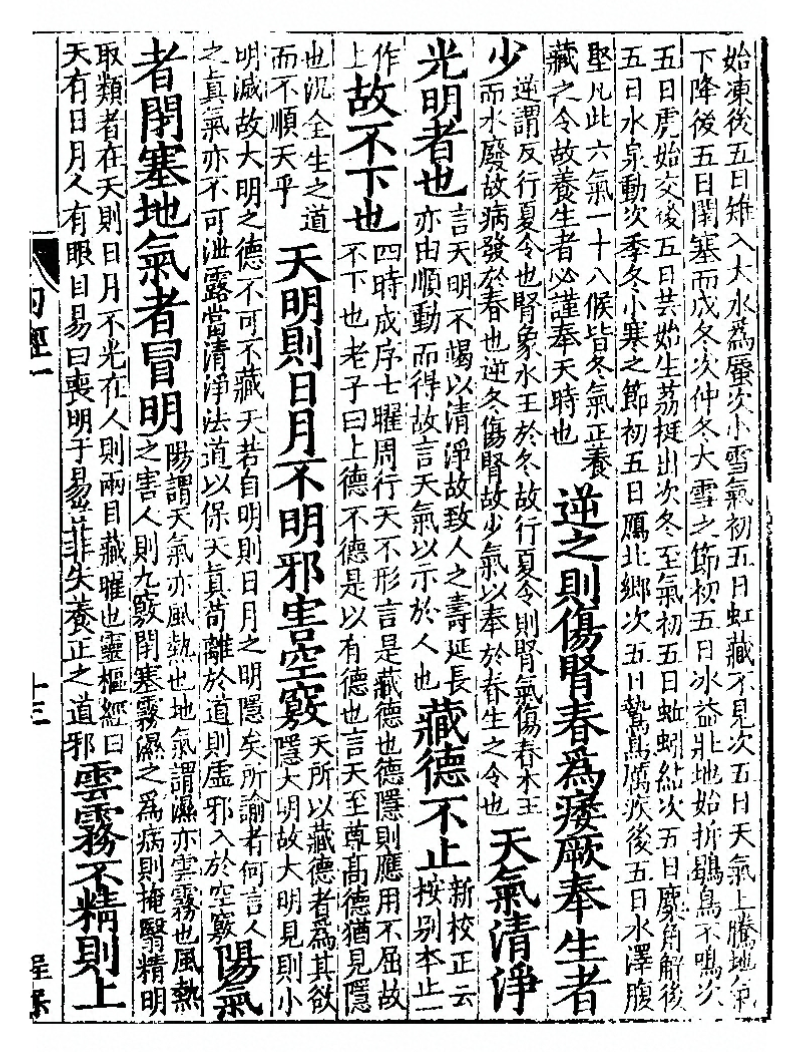 始凍後五日雉入大水為蜃次小雪氣初五日虹藏不見次五日天氣上騰地氣
下降後五日閉塞而成冬次仲冬大雪之節初五日冰益壯地始坼鶡鳥不鳴次
五日虎始交後五日芸始生荔挺出次冬至氣初五日蚯蚓結次五日麋角解後
五日水泉動次季冬小寒之節初五日鴈北鄉次五日鷙鳥厲疾後五日水澤腹
堅凡此六氣一十八候皆冬氣正養
藏之令故養生者必謹奉天時也
逆之則傷腎春為痿厥奉生者
少
逆謂反行夏令也腎象水王於冬故行夏令則腎氣傷春木王
而水廢故病發於春也逆冬傷腎故少氣以奉於春生之令也
天氣清淨
光明者也
言天明不竭以清淨故致人之壽延長
亦由順動而得故言天氣以示於人也
藏德不止
新校正云
按別本止一
作
上
故不下也
四時成序七曜周行天不形言是藏德也德隱則應用不屈故
不下也老子曰上德不德是以有德也言天至尊高德猶見隱
也況全生之道
而不順天乎
天明則日月不明邪害空竅
天所以藏德者為其欲
隱大明故大明見則小
明滅故大明之德不可不藏天若自明則日月之明隱矣所諭者何言人
之真氣亦不可泄露當清淨法道以保天真苟離於道則虛邪入於空竅
陽氣
者閉塞地氣者冒明
陽謂天氣亦風熱也地氣謂濕亦雲霧也風熱
之害人則九竅閉塞霧濕之為病則掩翳精明
取類者在天則日月不光在人則兩目藏曜也靈樞經曰
天有日月人有眼目易曰喪明于易豈非失養正之道邪
雲霧不精則上
内經一
十三